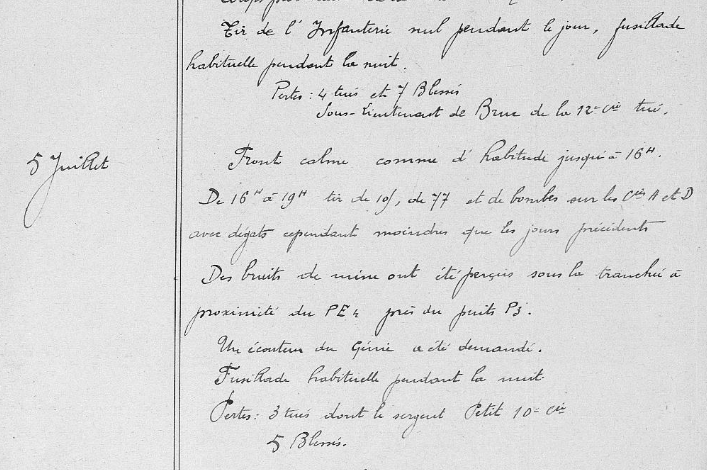 Tir de l'Infanterie nul pendant le jour, fusillade
habituelle pendant la nuit.
Pertes: 4 tués et 7 Blessés
Sous-Lieutenant de Brue de la 12e Cie tué.
5 Juillet
Front calme comme d'habitude jusqu'à 16H.
De 16H à 19H tir de 105, de 77 et de bombes sur les Cies A et D
avec dégats cependant moindres que les jours précédents
Des bruits de mine ont été perçus sous la tranchée à
proximité du PE4 près du puits P3.
Un écouteur du Génie a été demandé.
Fusillade habituelle pendant la nuit
Pertes: 3 tués dont le sergent Petit 10e Cie
5 Blessés.